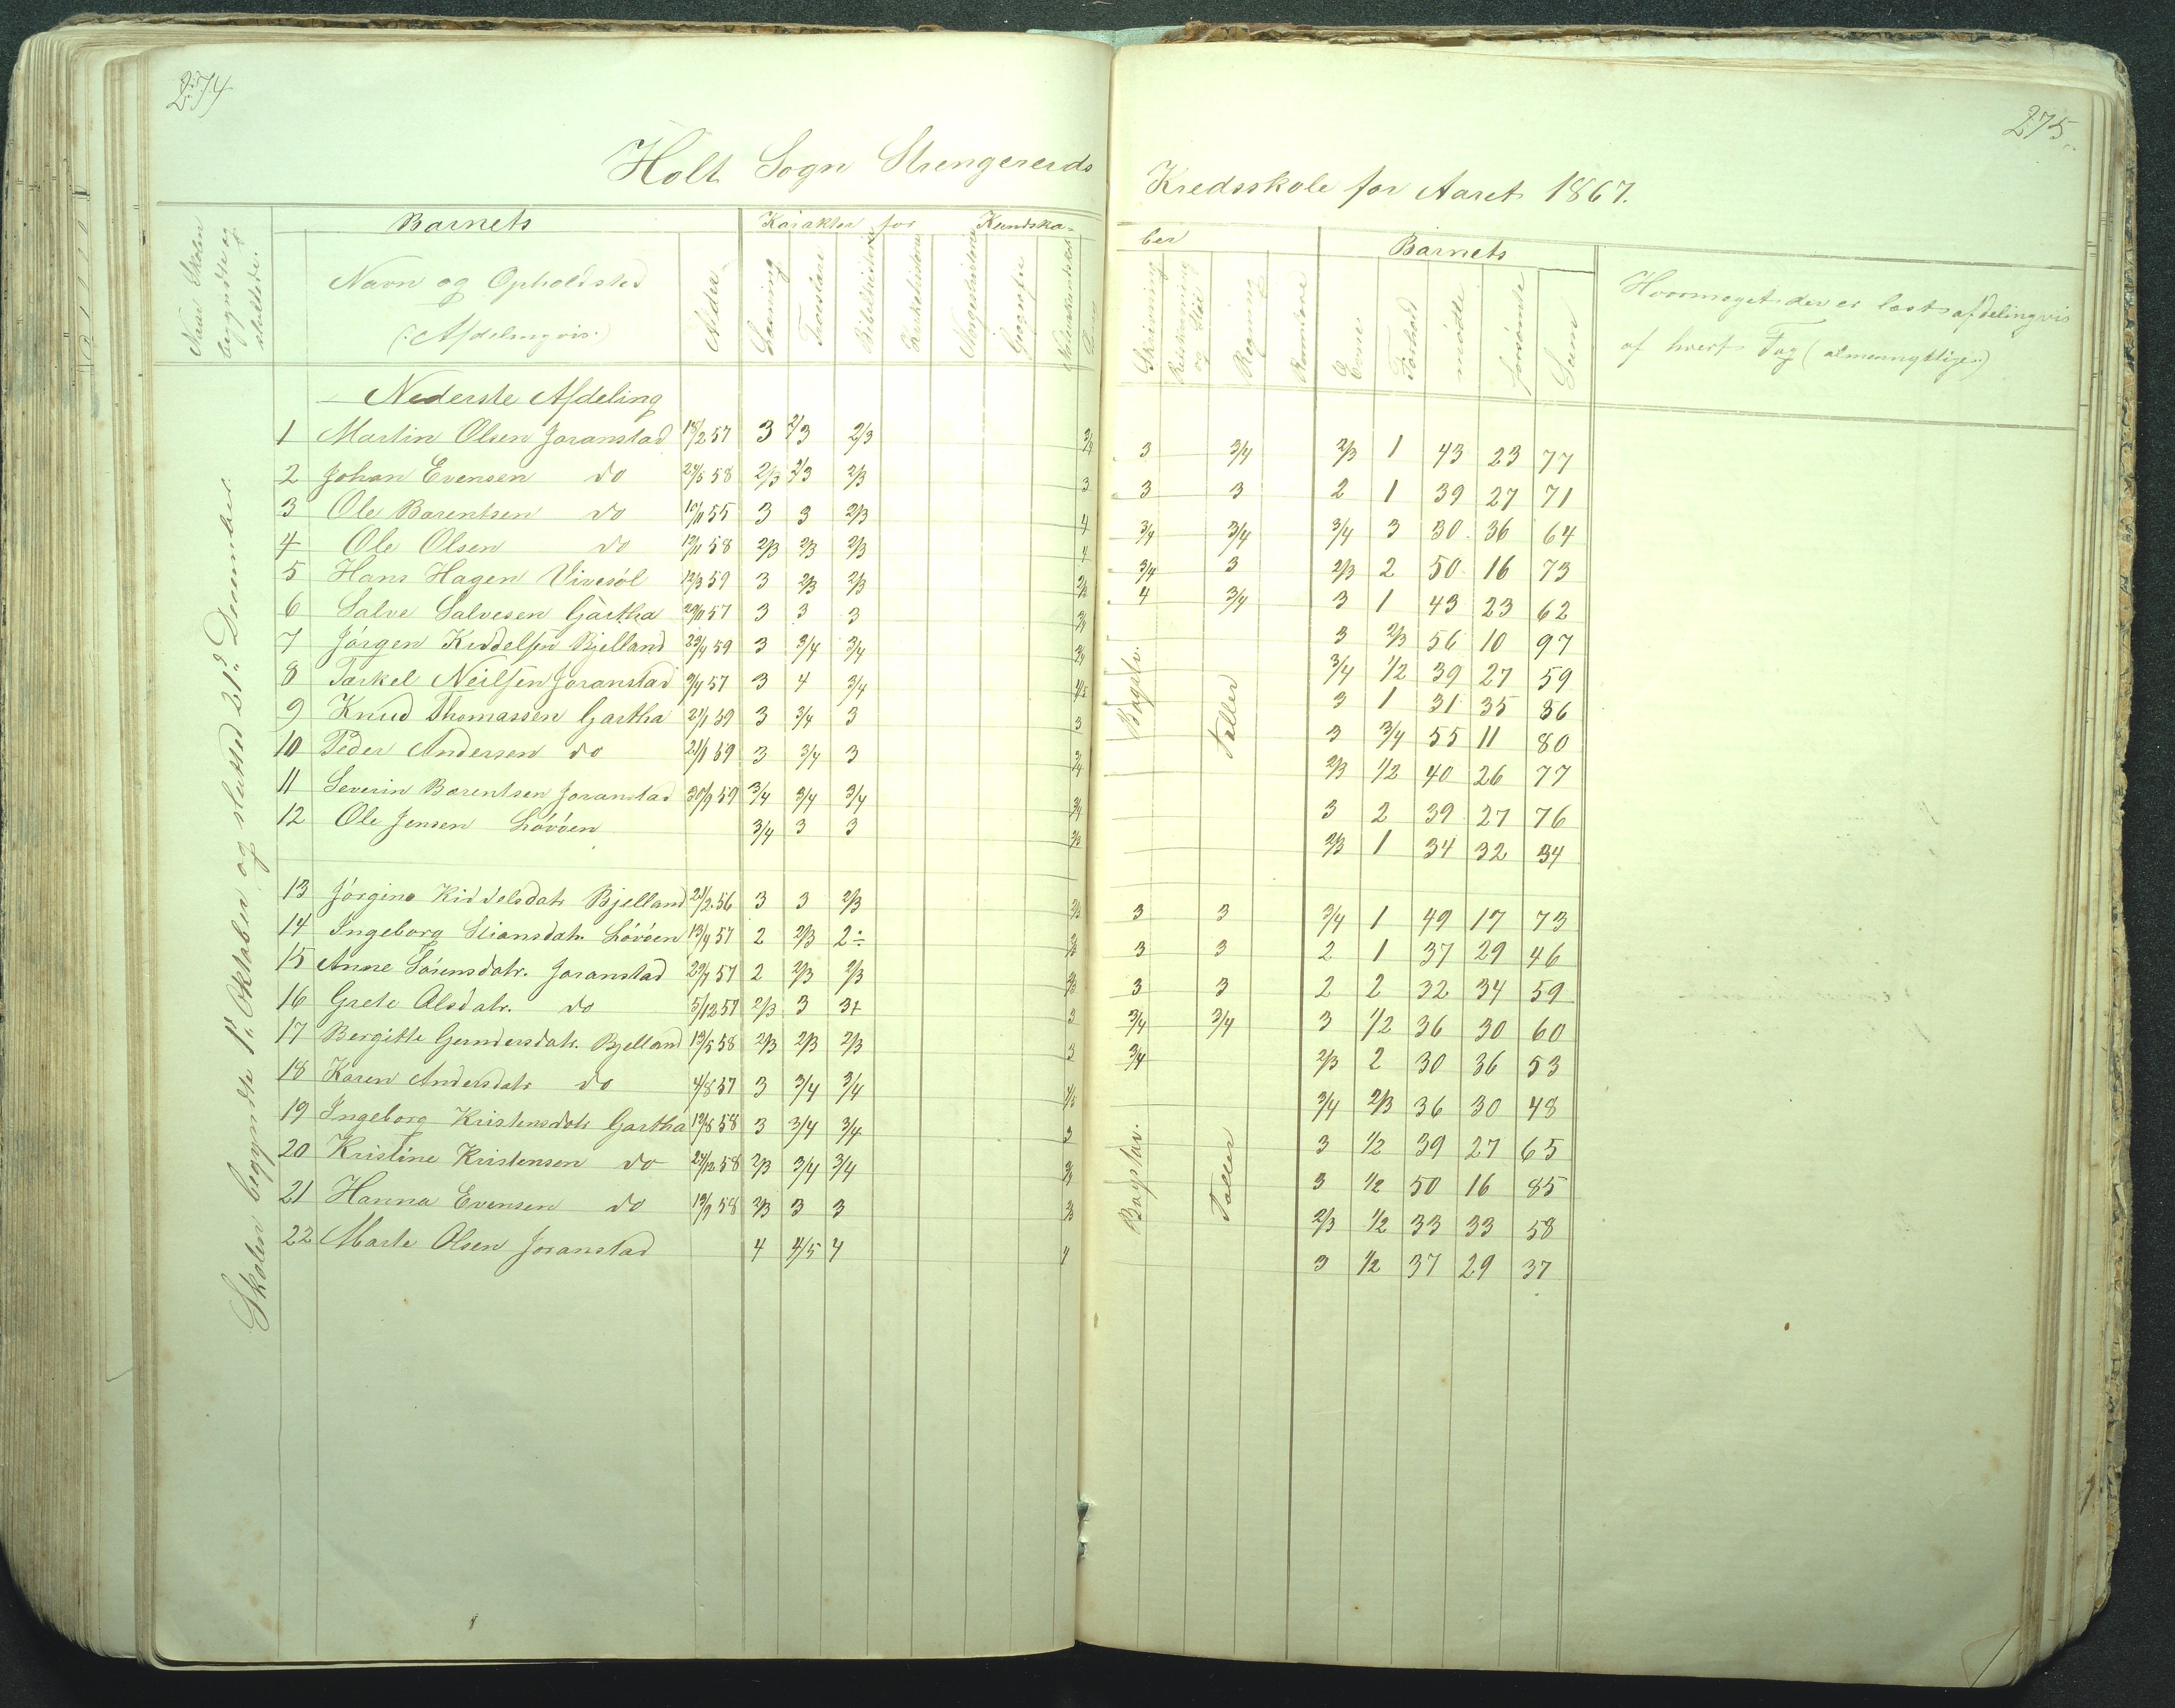 274
275
Holt Sogn Strengereids Kredsskole for Aaret 1867.
Naar Skolen begyndte og sluttede.
Barnets
Navn og Opholdsted
(Afdelingvis)
Alder
Karakter for Kundskaber
Læsning
Troeslære
Bibelhistorie
Kirkehistorie
Norgeshistorie
Geografie
Naturkundskab
Sang
Skrivning
Retskrivning og Stiil
Regning
Barnets
Evner
Forhold
mødte
forsømte
Sum
Hvormeget der er læst afdelingvis
af hvert Fag (almennyttige)
Skolen begyndte 1te Oktober og slutted 21de December.
Nederste Afdeling
1 Martin Olsen Joranstad 18/2 57 3 2/3 2/3 3/4 3 3/4 2/3 1 43 23 77
2 Johan Evensen do 24/5 58 2/3 2/3 2/3 3 3 3 2 1 39 27 71
3 Ole Barentsen do 10/11 55 3 3 2/3 4 3/4 3/4 3/4 3 30 36 64
4 Ole Olsen do 12/11 58 2/3 2/3 2/3 4 3/4 3 2/3 2 50 16 73
5 Hans Hagen Vivesøl 12/3 59 3 2/3 2/3 2/3 4 3/4 3 1 43 23 62
6 Salve Salvesen Gjærtha 20/11 57 3 3 3 3/4 3 2/3 56 10 97
7 Jørgen Kiddelsen Bjelland 23/4 59 3 3/4 3/4 3/4 3/4 1/2 39 27 59
8 Tarkel Neilsen Joranstad 9/4 57 3 4 3/4 4/5 3 1 31 35 36
9 Knud Thomassen Gartha 21/1 59 3 3/4 3 3 3 3/4 55 11 80
10 Peder Andersen do 21/1 59 3 3/4 3 3/4 2/3 1/2 40 26 77
11 Severin Barentsen Joranstad 30/9 59 3/4 3/4 3/4 3/4 3 2 39 27 76
12 Ole Jensen Løvøen 3/4 3 3 2/3 2/3 1 34 32 34
Bogstav.
Taller
13 Jørgine Kiddelsdatr Bjelland 21/2 56 3 3 2/3 2/3 3 3 3/4 1 49 17 73
14 Ingeborg Stiansdatr. Løvøen 13/9 57 2 2/3 2÷ 2/3 3 3 2 1 37 29 46
15 Anne Sørensdatr. Joranstad 29/7 57 2 2/3 2/3 2/3 3 3 2 2 32 34 59
16 Grete Olsdatr. do 5/12 57 2/3 3 3+ 3 3/4 3/4 3 1/2 36 30 60
17 Bergitte Gundersdatr. Bjelland 13/5 58 2/3 2/3 2/3 3 3/4 2/3 2 30 36 53
18 Karen Andersdatr do 4/8 57 3 3/4 3/4 4/5 3/4 2/3 36 30 48
19 Ingeborg Kristensdatr Gartha 19/8 58 3 3/4 3/4 3 3 1/2 39 27 65
20 Kristine Kristensen do 24/12 58 2/3 3/4 3/4 3/4 3 1/2 50 16 85
21 Hanna Evensen do 13/9 58 2/3 3 3 2/3 2/3 1/2 33 33 58
22 Marte Olsen Joranstad 4 4/5 4 4 3 1/2 37 29 37
Bogstav.
Taller